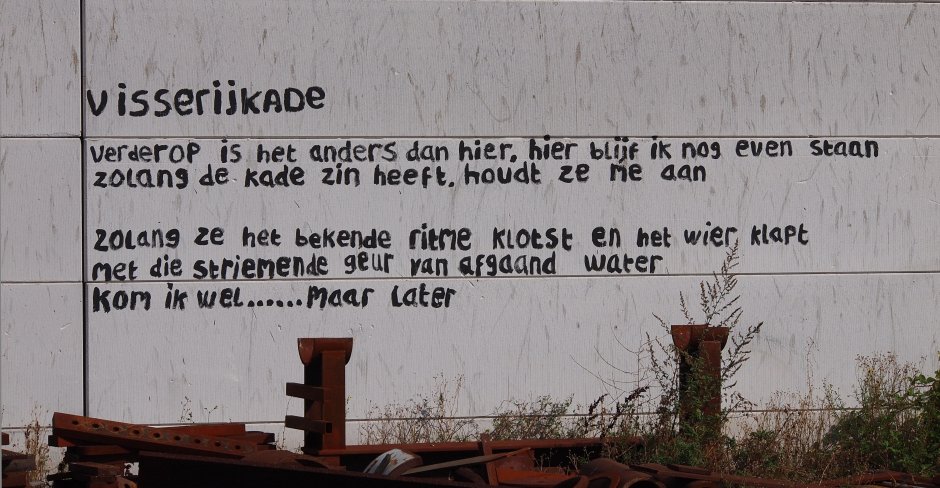 visserijKADE
verderop is het anders dan hier, hier blijf ik nog even staan
zolang de kade zin heeft, houdt ze me aan
zolang ze het bekende ritme klotst en het wier klapt
met die striemende geur van afgaand water
kom ik wel.......maar later